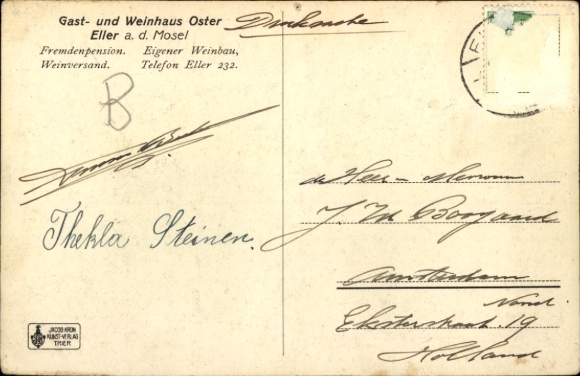 Gast- und Weinhaus Oster
Eller a. d. Mosel
Fremdenpension. Eigener Weinbau,
Weinversand. Telefon Eller 232.
Drucksache
B
Thekla Steinen.
JACOB KRON
KUNST-VERLAG
TRIER
de Heer – Mevrouw
J. Boogaard
Amsterdam
Noord.
Eksterstraat. 19
Holland